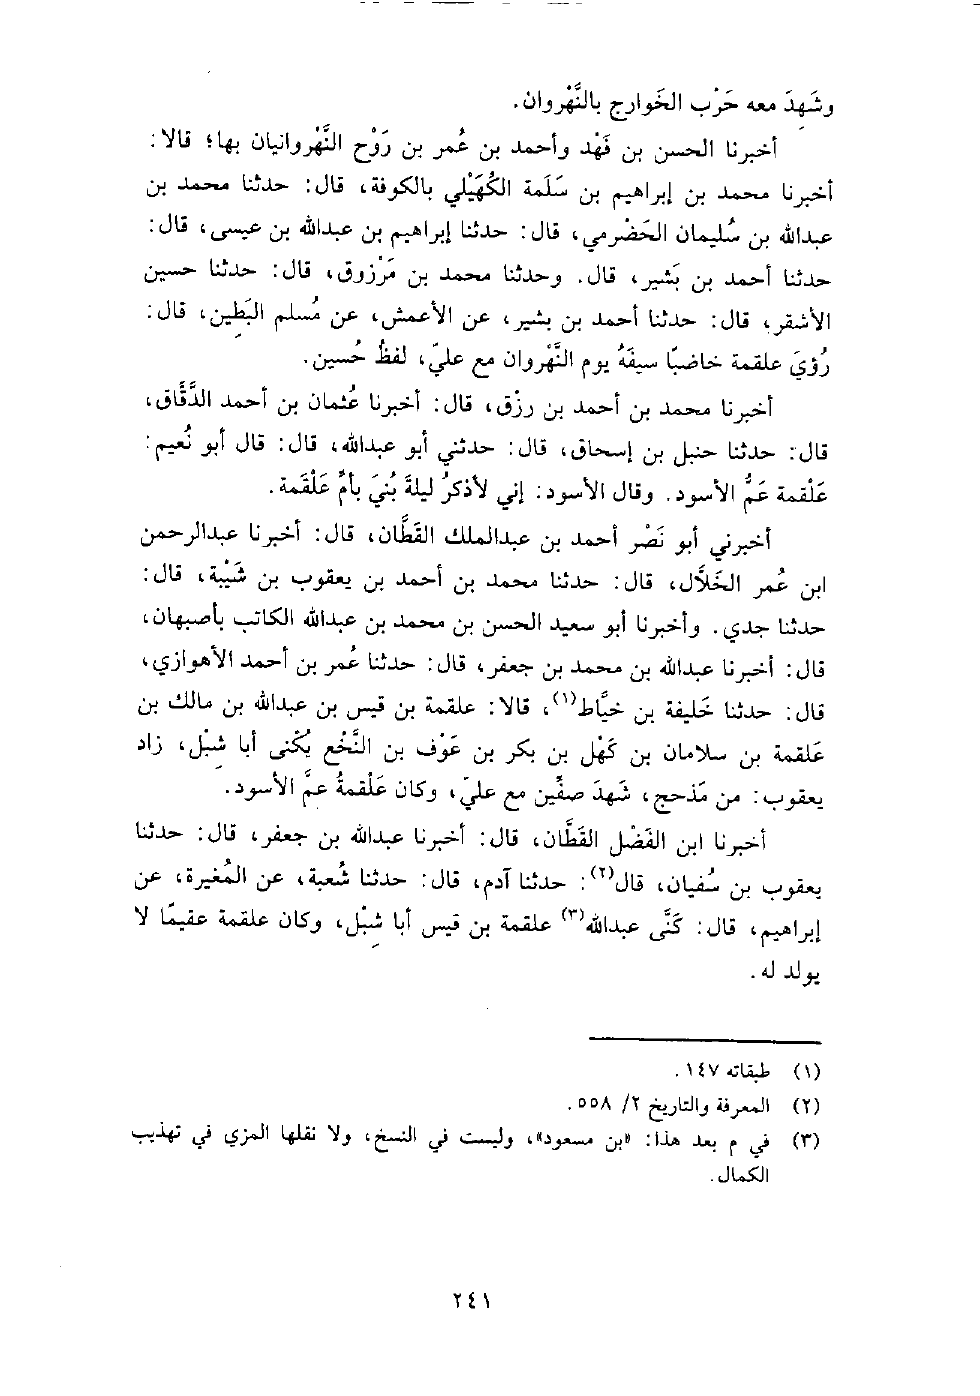 وشَهِدَ معه حَرْب الخَوارج بالنَّهْروان.
أخبرنا الحسن بن فَهْد وأحمد بن عُمر بن رَوْح النَّهْروانيان بها؛ قالا:
أخبرنا محمد بن إبراهيم بن سَلَمة الكُهَيْلي بالكوفة، قال: حدثنا محمد بن
عبدالله بن سُليمان الحَضْرمي، قال: حدثنا إبراهيم بن عبدالله بن عيسى، قال:
حدثنا أحمد بن بَشير، قال. وحدثنا محمد بن مَرْزوق، قال: حدثنا حسين
الأشقر، قال: حدثنا أحمد بن بشير، عن الأعمش، عن مُسلم البَطِين، قال:
رُؤيَ علقمة خاضبًا سيفَهُ يوم النَّهْروان مع عليّ، لفظُ حُسين.
أخبرنا محمد بن أحمد بن رزق، قال: أخبرنا عُثمان بن أحمد الدَّقَّاق،
قال: حدثنا حنبل بن إسحاق، قال: حدثني أبو عبدالله، قال: قال أبو نُعيم:
عَلْقمة عَمُّ الأسود. وقال الأسود: إني لأذكرُ ليلةَ بُنيَ بأمِّ عَلْقَمة.
أخبرني أبو نَصْر أحمد بن عبدالملك القَطَّان، قال: أخبرنا عبدالرحمن
ابن عُمر الخَلَّال، قال: حدثنا محمد بن أحمد بن يعقوب بن شَيْبة، قال:
حدثنا جدي. وأخبرنا أبو سعيد الحسن بن محمد بن عبدالله الكاتب بأصبهان،
قال: أخبرنا عبدالله بن محمد بن جعفر، قال: حدثنا عُمر بن أحمد الأهوازي،
قال: حدثنا خَليفة بن خيَّاط(١)، قالا: علقمة بن قيس بن عبدالله بن مالك بن
عَلقمة بن سلامان بن كَهْل بن بكر بن عَوْف بن النَّخْع يُكْنى أبا شِبْل، زاد
يعقوب: من مَذحج، شَهِدَ صفِّين مع عليّ، وكان عَلْقمةُ عمَّ الأسود.
أخبرنا ابن الفَضْل القَطَّان، قال: أخبرنا عبدالله بن جعفر، قال: حدثنا
يعقوب بن سُفيان، قال(٢): حدثنا آدم، قال: حدثنا شُعبة، عن المُغيرة، عن
إبراهيم، قال: كَنَّى عبدالله(٣) علقمة بن قيس أبا شِبْل، وكان علقمة عقيمًا لا
يولد له.
(١) طبقاته ١٤٧.
(٢) المعرفة والتاريخ ٢/ ٥٥٨.
(٣) في م بعد هذا: «ابن مسعود»، وليست في النسخ، ولا نقلها المزي في تهذيب
الكمال.
٢٤١